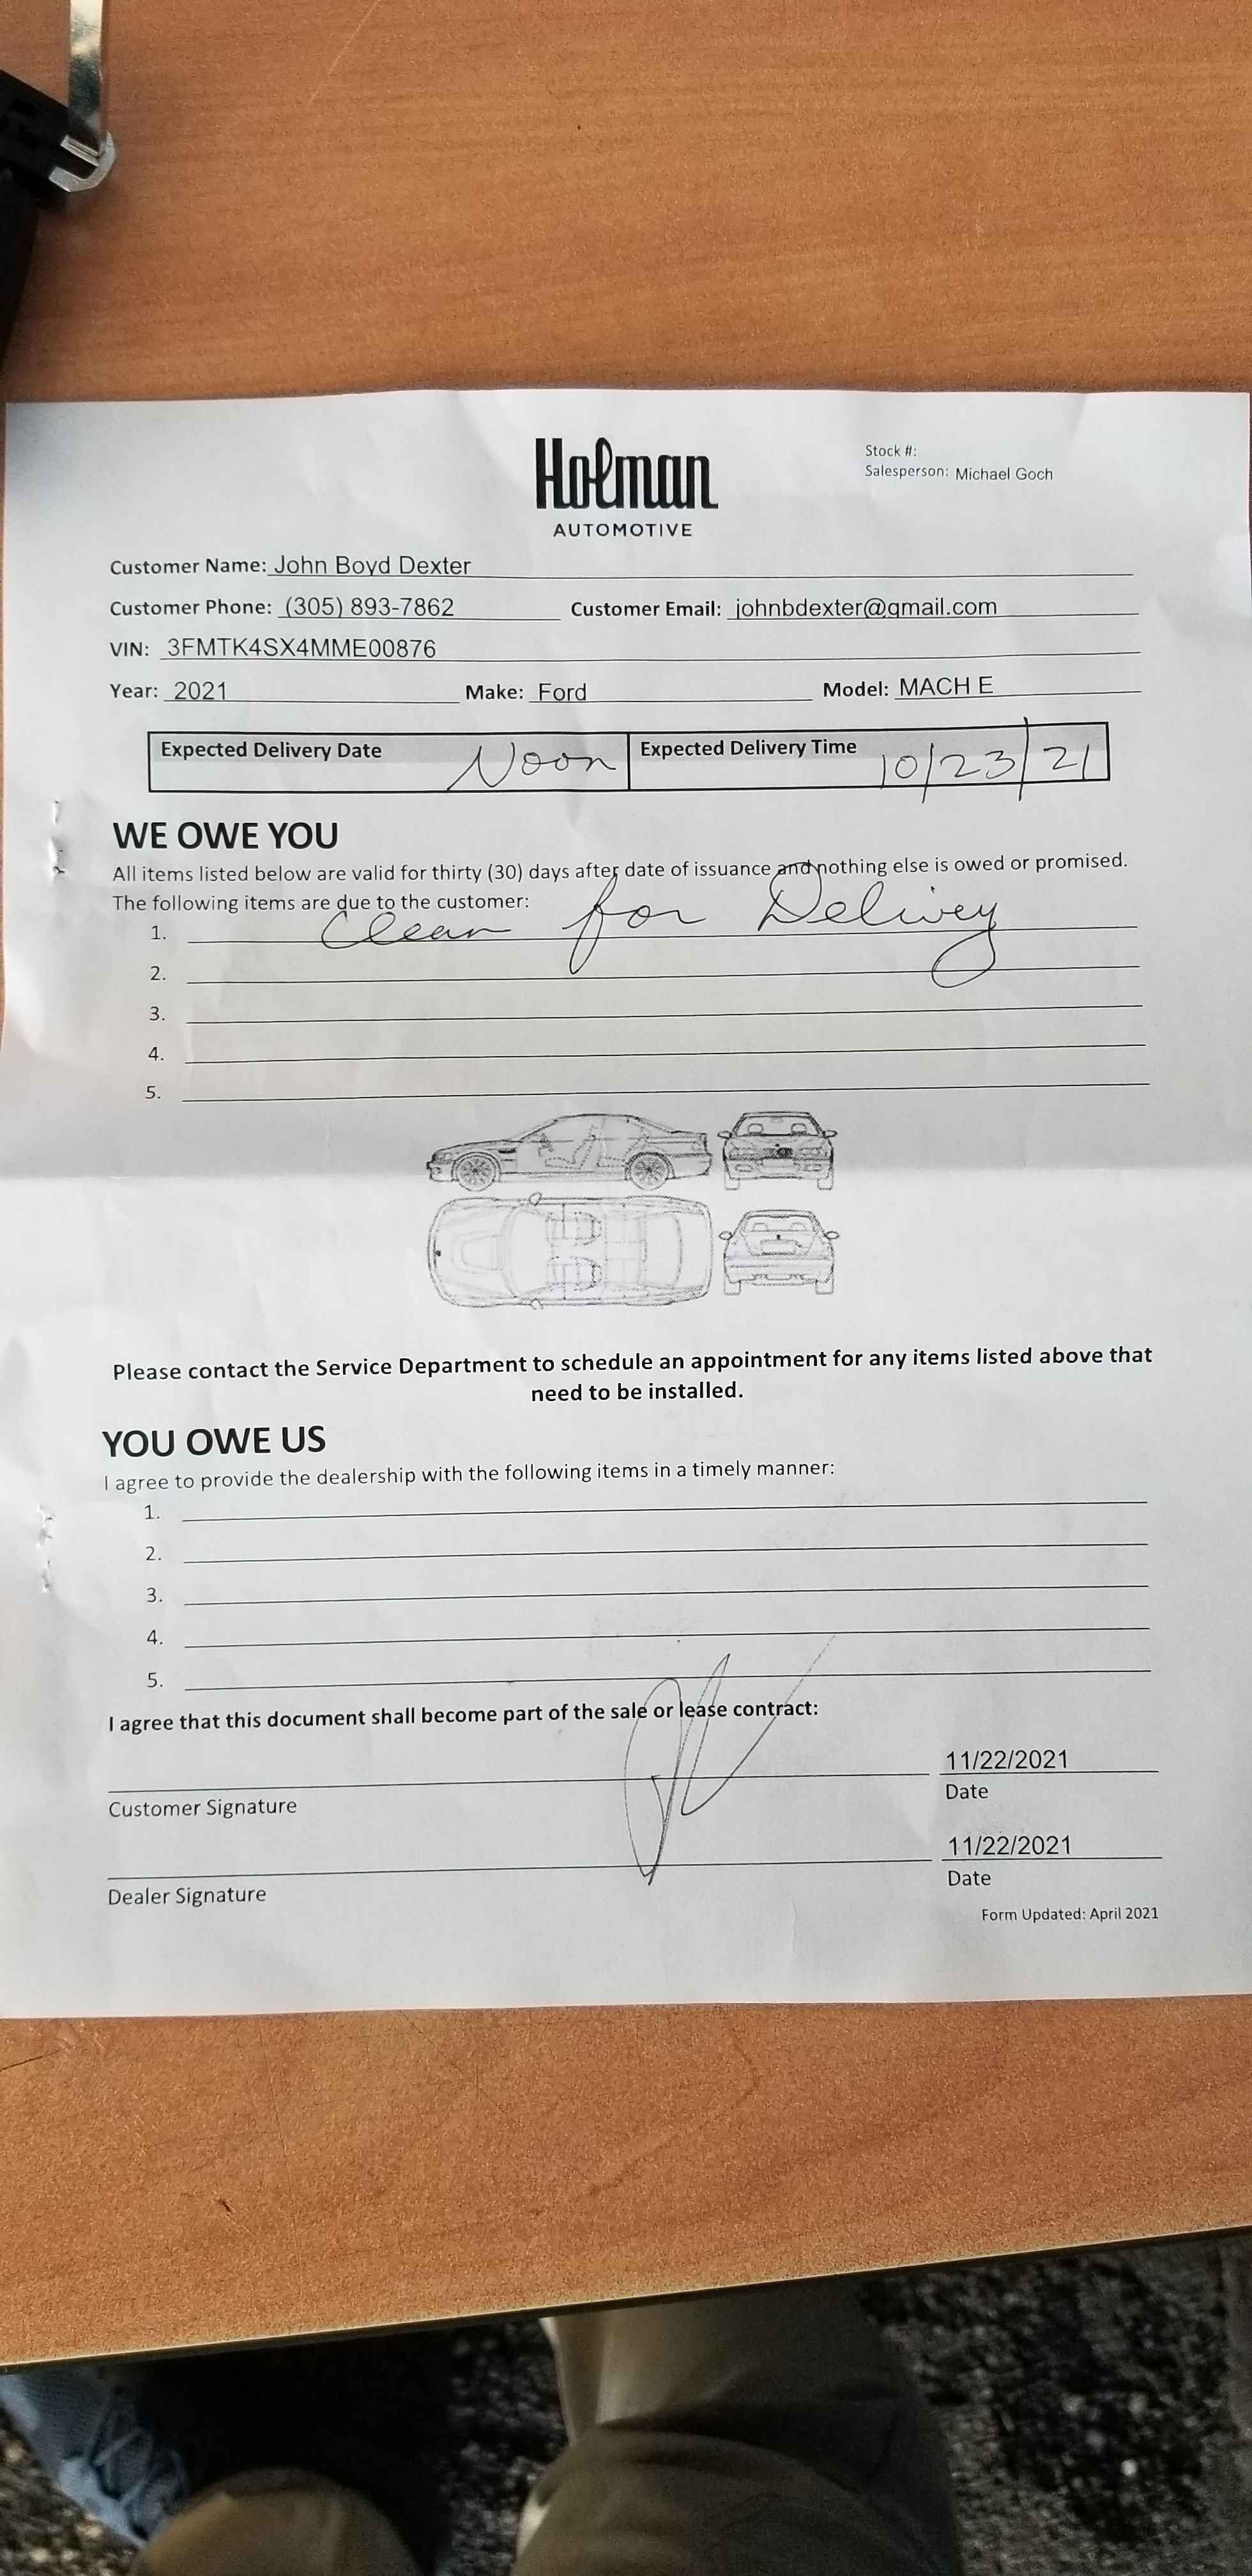 Holman
AUTOMOTIVE
Stock #:
Salesperson: Michael Goch
Customer Name: John Boyd Dexter
Customer Phone: (305) 893-7862 Customer Email: johnbdexter@gmail.com
VIN: 3FMTK4SX4MME00876
Year: 2021 Make: Ford Model: MACH E
Expected Delivery Date Noon Expected Delivery Time 10/23/21
WE OWE YOU
All items listed below are valid for thirty (30) days after date of issuance and nothing else is owed or promised.
The following items are due to the customer:
1. Clean for Delivey
2.
3.
4.
5.
Please contact the Service Department to schedule an appointment for any items listed above that
need to be installed.
YOU OWE US
I agree to provide the dealership with the following items in a timely manner:
1.
2.
3.
4.
5.
I agree that this document shall become part of the sale or lease contract:
11/22/2021
Customer Signature Date
11/22/2021
Dealer Signature Date
Form Updated: April 2021